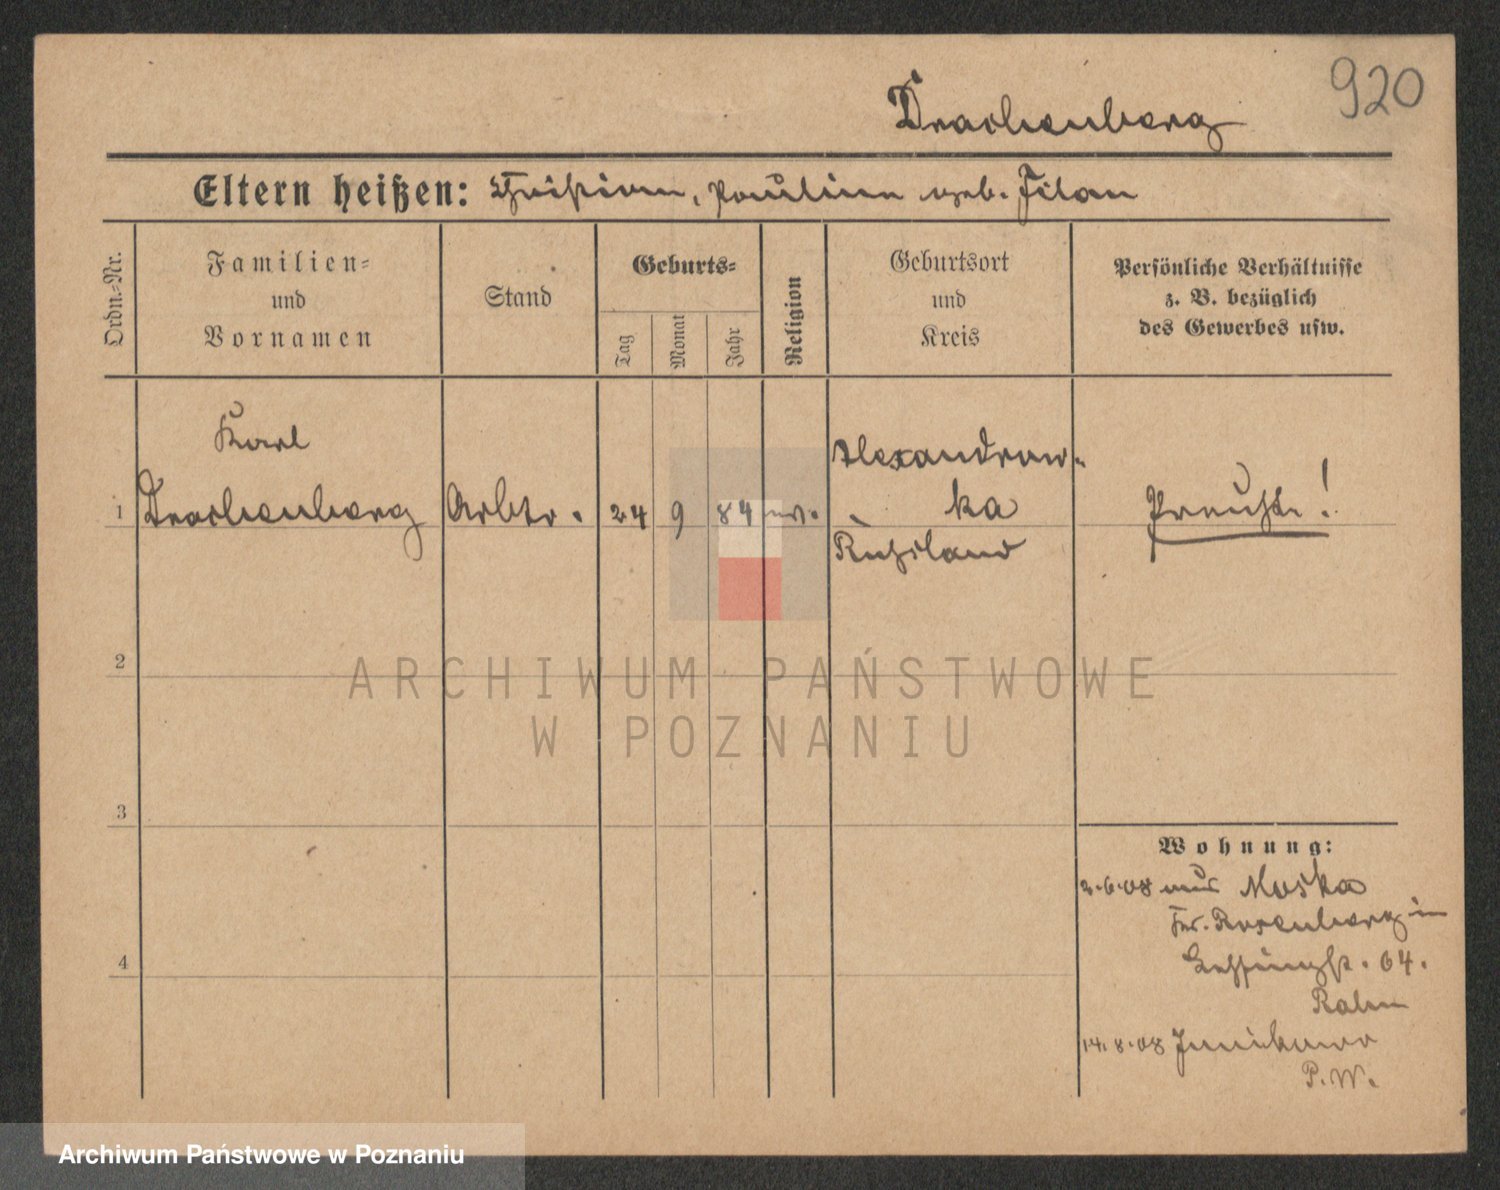 920
Drachenberg
Eltern heißen: Christian, Pauline geb. Filan
Ordn.-Nr.
Familien-
und
Vornamen
Stand
Geburts-
Tag
Monat
Jahr
Religion
Geburtsort
und
Kreis
Persönliche Verhältnisse
z. B. bezüglich
des Gewerbes usw.
Karl
1 Drachenberg Arbtr. 24 9 84 ev. Alexandrow-
ka
Rußland
Preuße!
2
ARCHIWUM PAŃSTWOWE
W POZNANIU
3
4
Wohnung:
2.6.08 aus Moska
Kr. Rosenberg in
Lessingst. 64.
14.8.08 Junikowo
P.W.
Archiwum Państwowe w Poznaniu